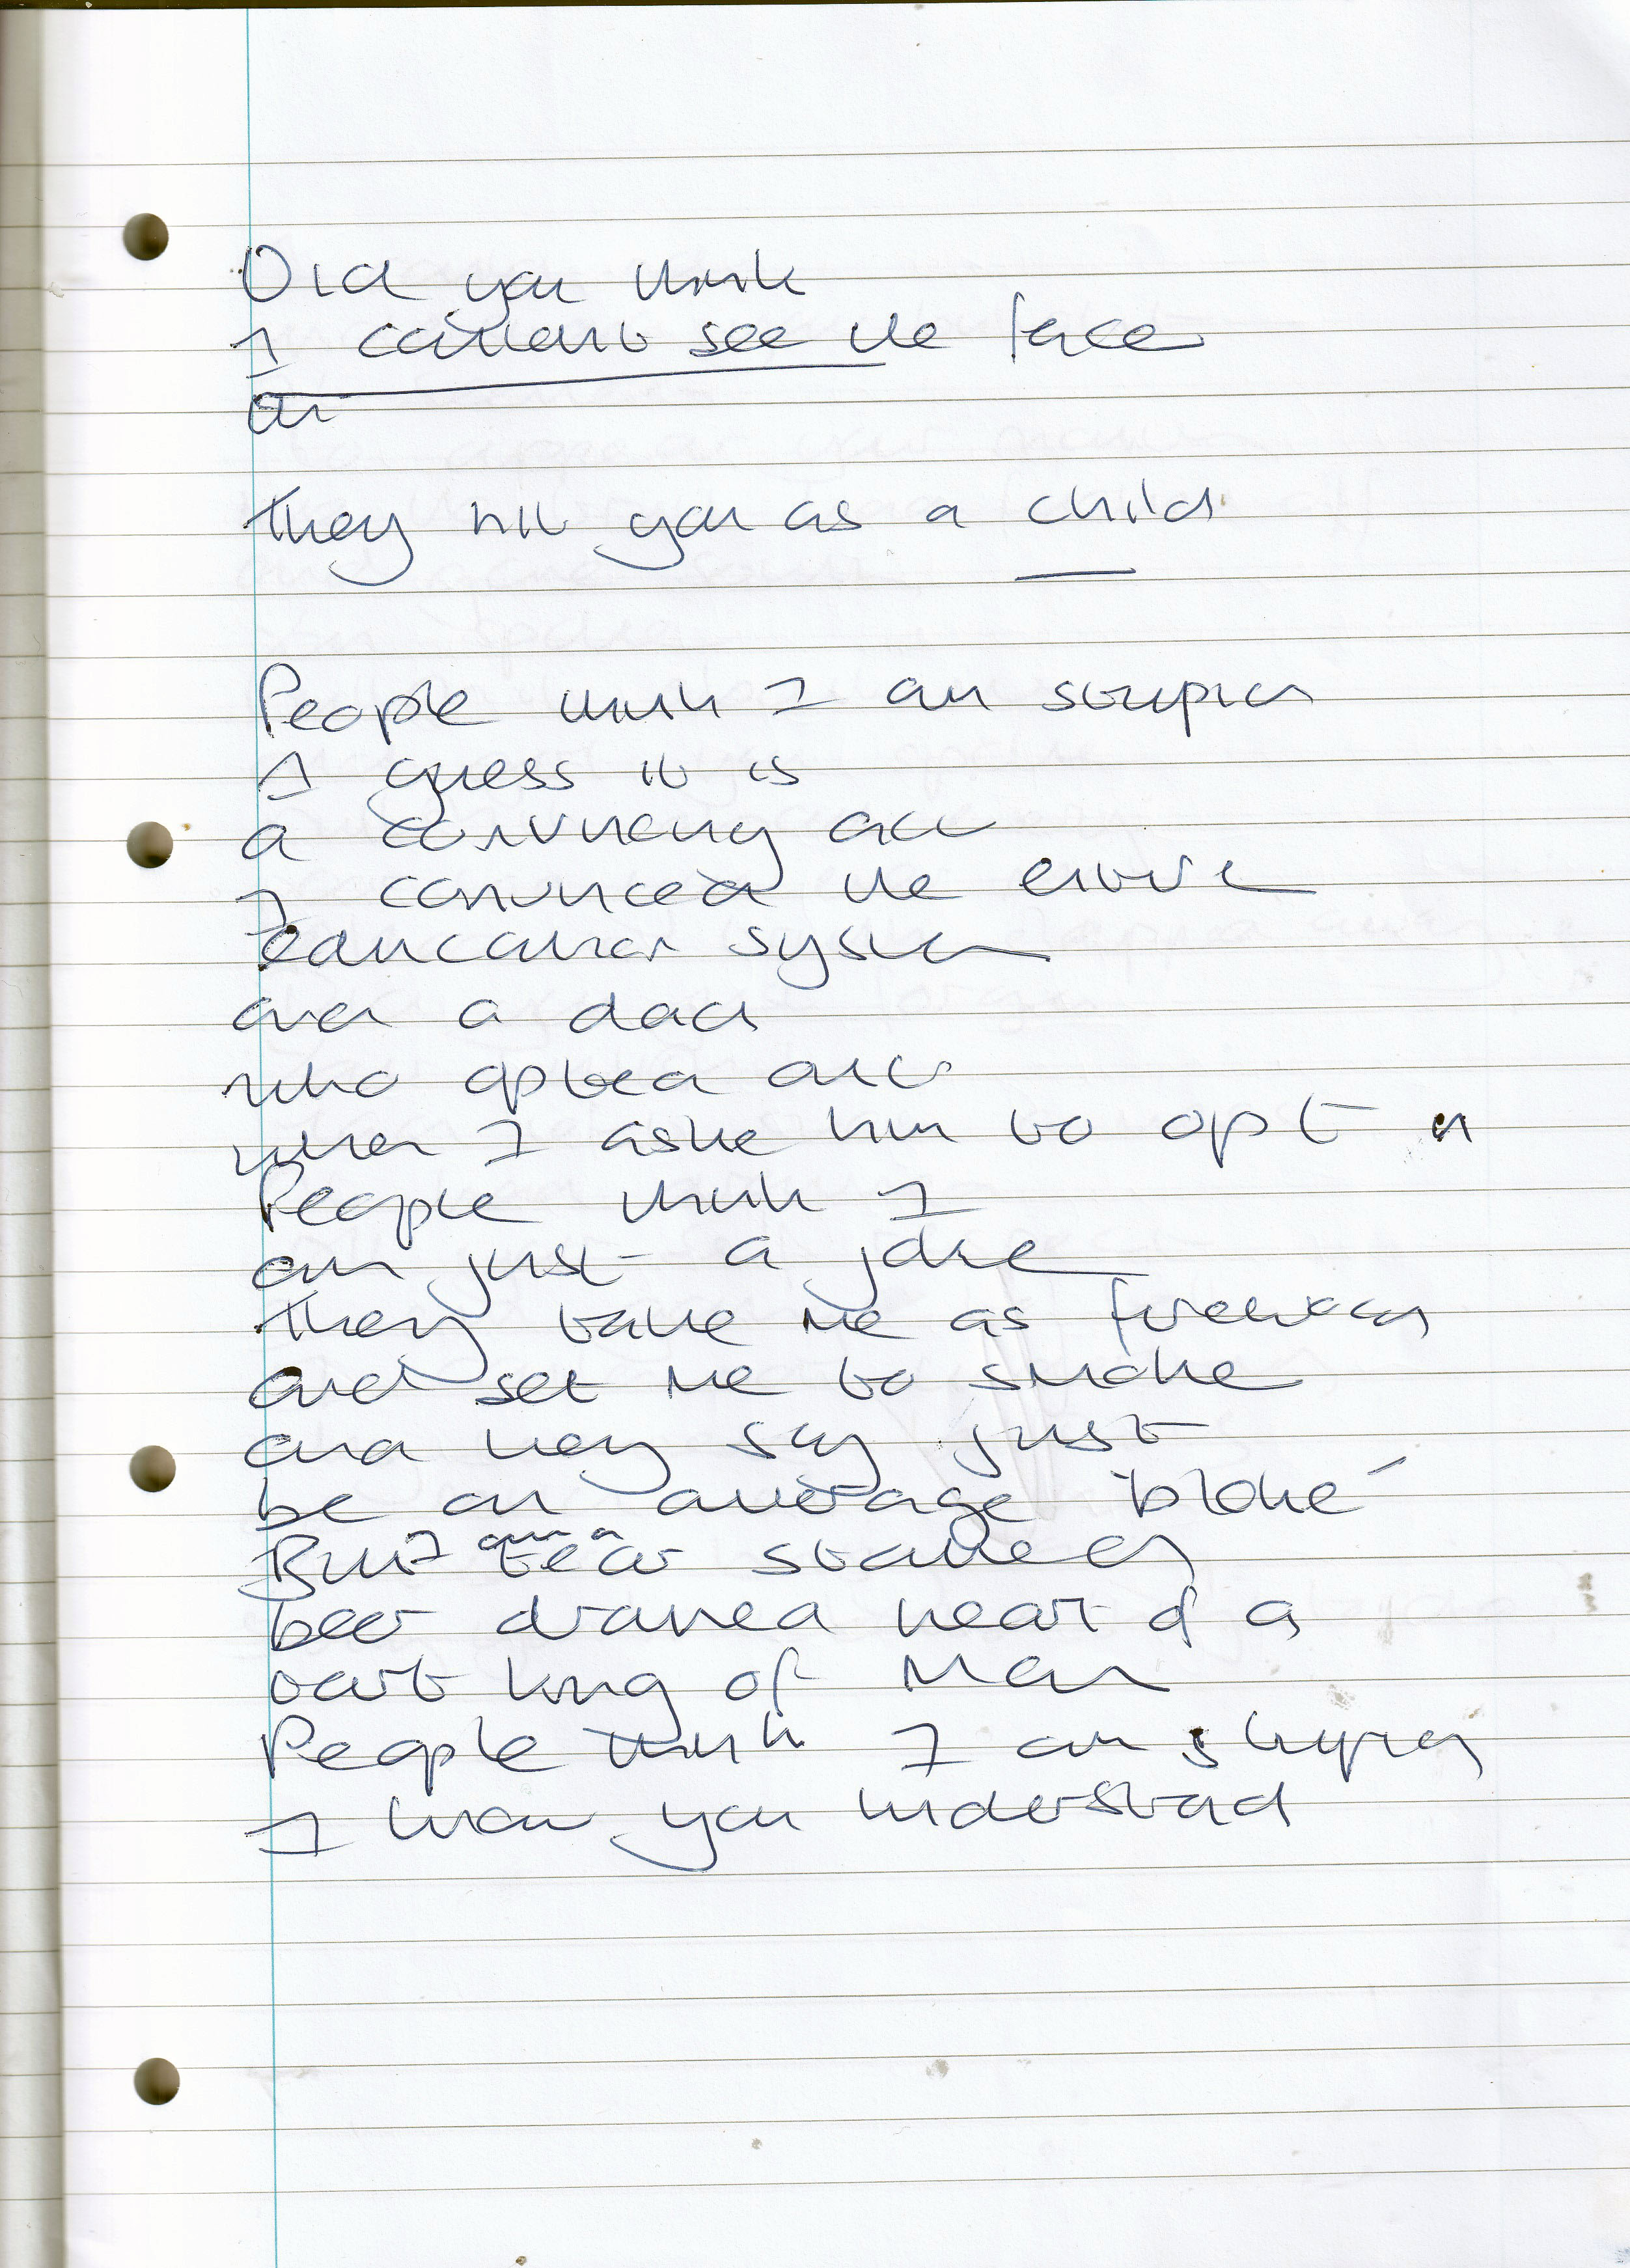 Did you think
I couldn't see the face
or
They hit you as a child
People think I am stupid
I guess it is
a convincing act
I convinced the entire
education system
and a dad
who opted out
when I aske him to opt in
People think I
am just a joke
They take me as firewood
and set me to smoke
and they say just
be an average 'bloke'
But I am a tear stained
beer drained heart of a
king of man
People think I am stupid
I know you understand